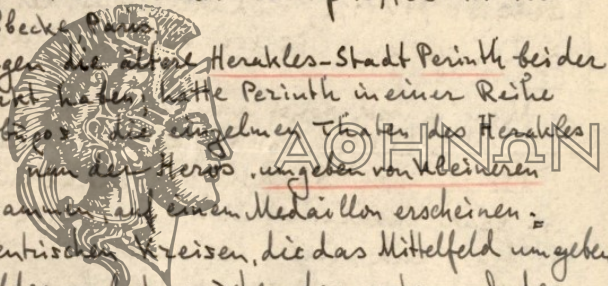 becke, Paris
gen die ältere Herakles-Stadt Perinth bei der
rkt haben, hatte Perinth in einer Reihe
die einzelnen Thaten des Herakles
nun der Heros, umgeben von kleineren
ΑΘΗΝΩΝ
ammen auf einem Medaillon erscheinen.
entrischen Kreisen, die das Mittelfeld umgeben